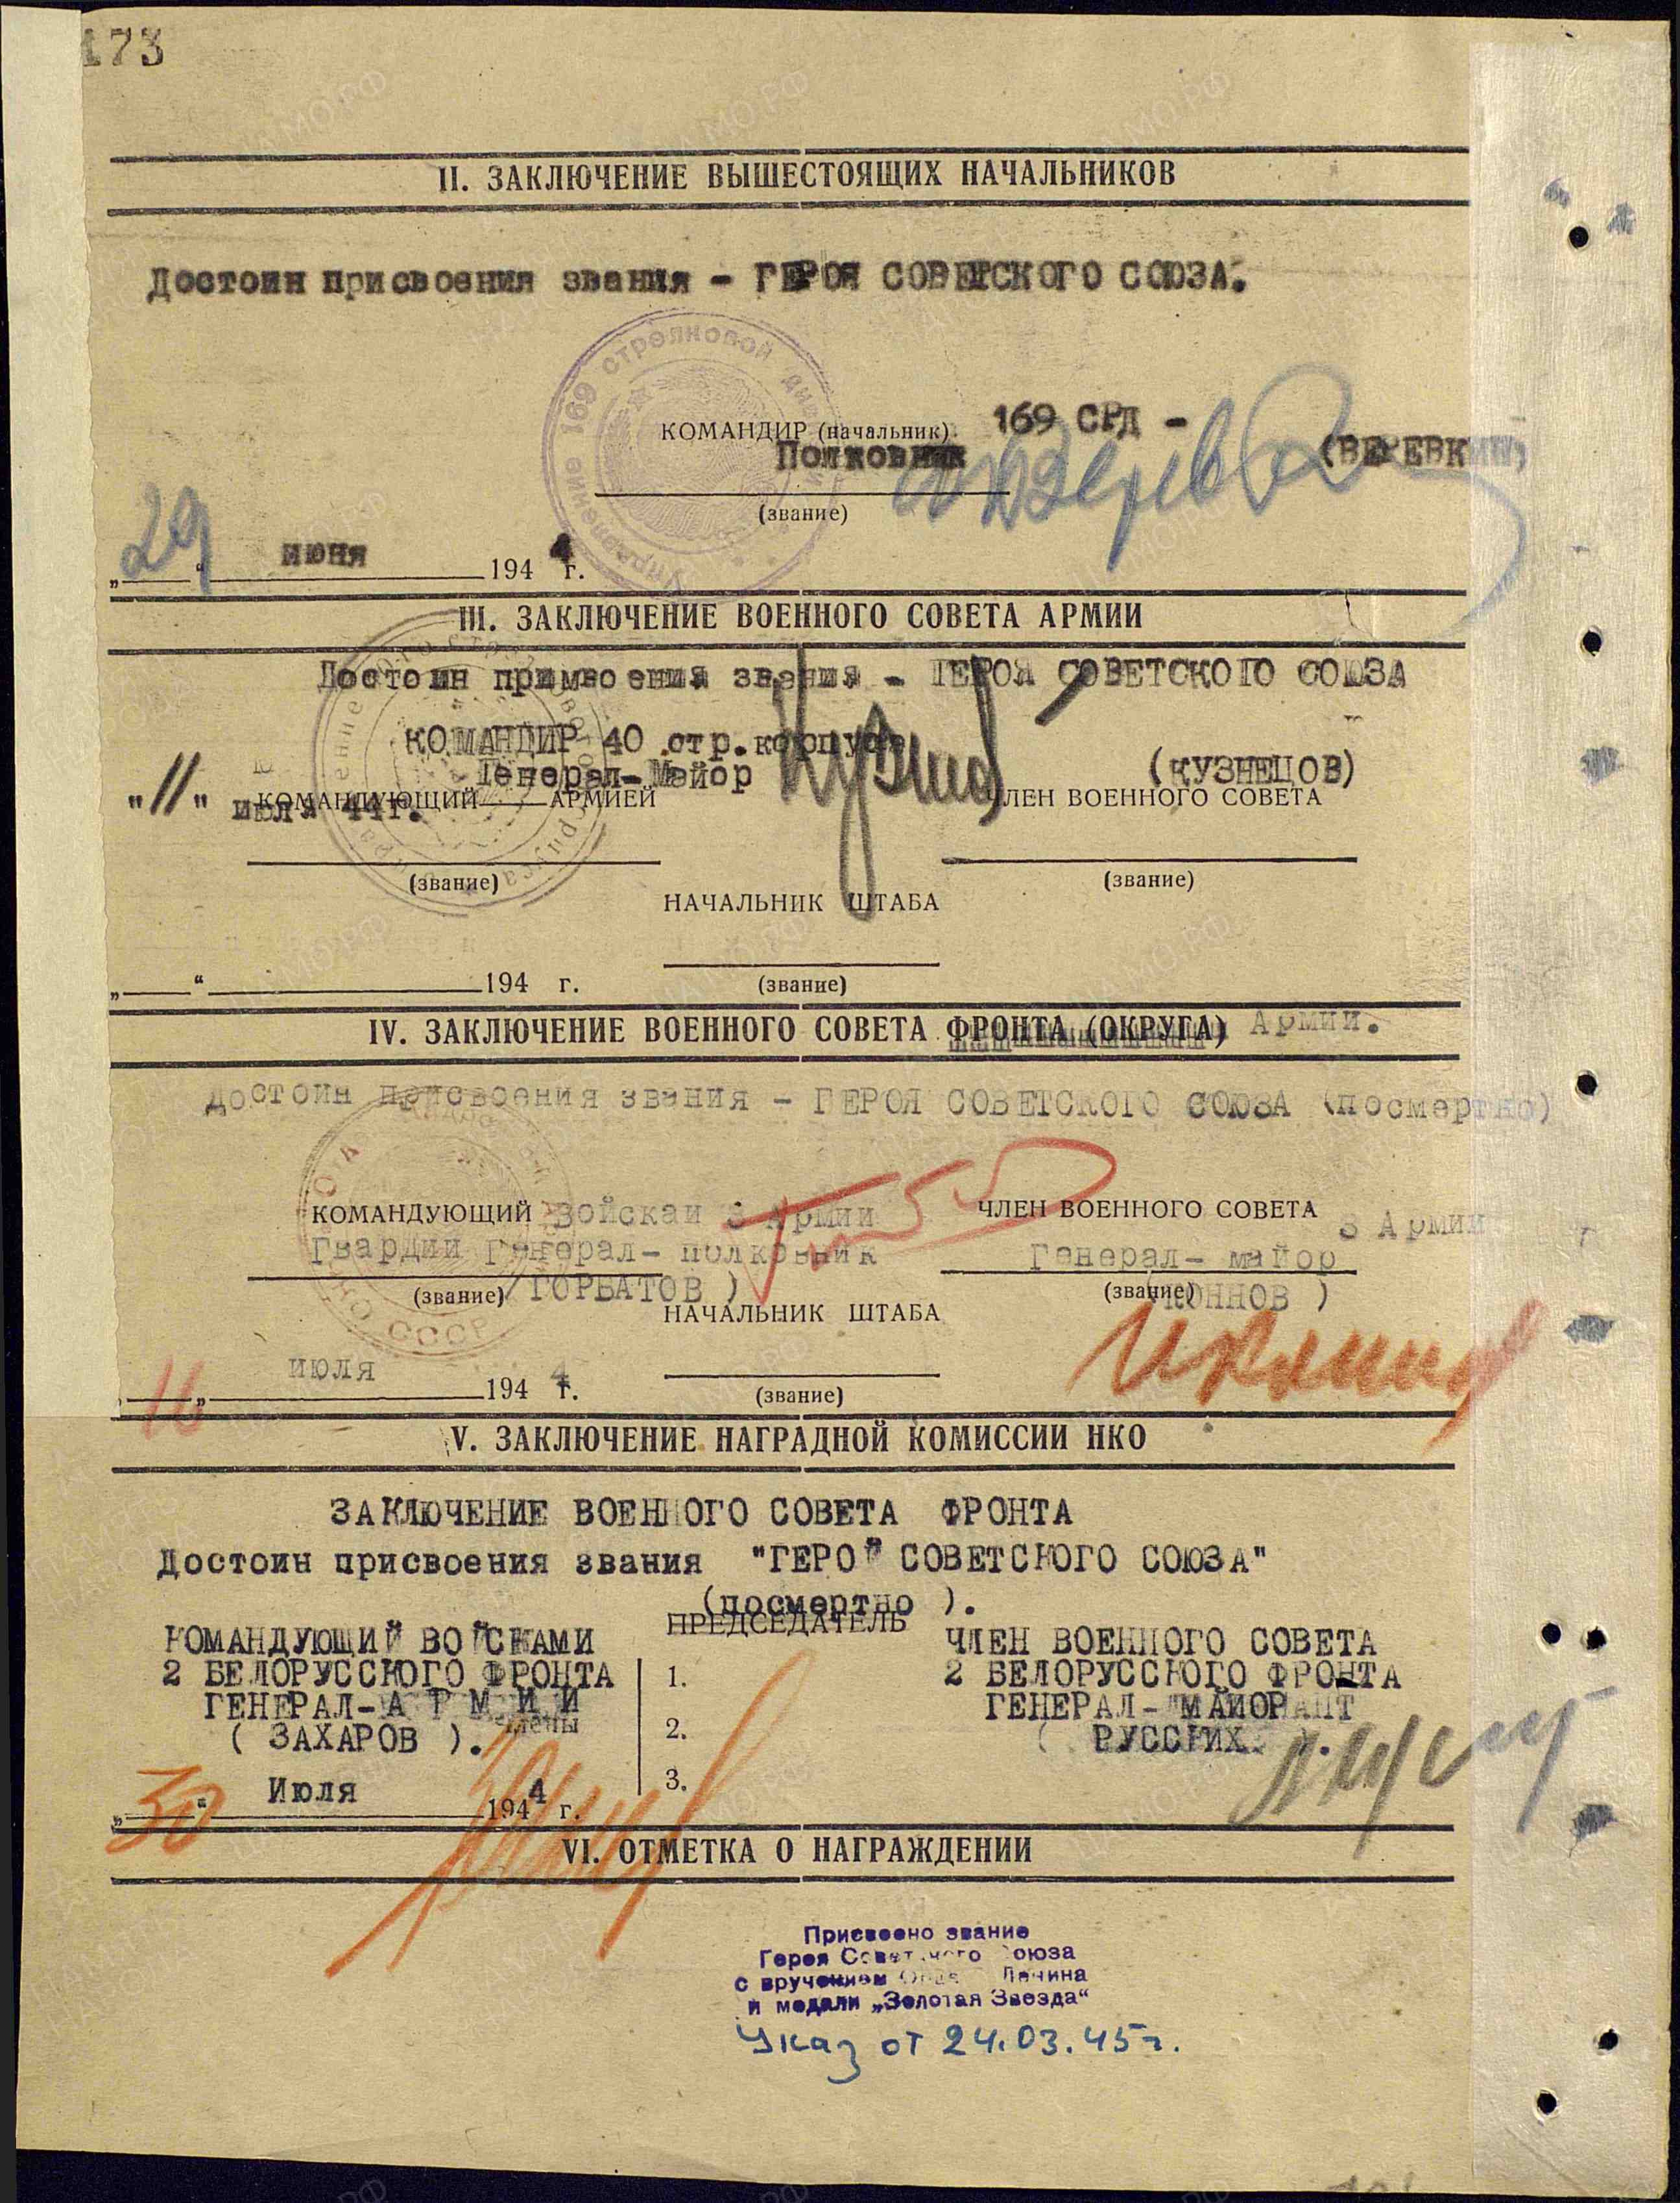 173
II. ЗАКЛЮЧЕНИЕ ВЫШЕСТОЯЩИХ НАЧАЛЬНИКОВ
Достоин присвоения звания - ГЕРОЯ СОВЕТСКОГО СОЮЗА.
169 стрелковой
Управление
КОМАНДИР (начальник) 169 СРД -
Полковник (ВЕРЕВКИН)
(звание)
„29“ июня 1944 г.
III. ЗАКЛЮЧЕНИЕ ВОЕННОГО СОВЕТА АРМИИ
Достоин примвоения звания - ГЕРОЯ СОВЕТСКОГО СОЮЗА
КОМАНДИР 40 стр.корпуса
Генерал-Майор (КУЗНЕЦОВ)
"11" КОМАНДУЮЩИЙ АРМИЕЙ ЧЛЕН ВОЕННОГО СОВЕТА
июля 44г.
(звание) (звание)
НАЧАЛЬНИК ШТАБА
„ “ 194 г. (звание)
IV. ЗАКЛЮЧЕНИЕ ВОЕННОГО СОВЕТА ФРОНТА (ОКРУГА) Армии.
Достоин присвоения звания - ГЕРОЯ СОВЕТСКОГО СОЮЗА (посмертно)
КОМАНДУЮЩИЙ Войскаи 3 Армии ЧЛЕН ВОЕННОГО СОВЕТА 3 Армии
Гвардии Генерал- полковник Генерал- майор
(звание) /ГОРБАТОВ ) (звание) (КОННОВ )
НАЧАЛЬНИК ШТАБА
СССР
16 июля 1944 г. (звание)
V. ЗАКЛЮЧЕНИЕ НАГРАДНОЙ КОМИССИИ НКО
ЗАКЛЮЧЕНИЕ ВОЕННОГО СОВЕТА ФРОНТА
Достоин присвоения звания "ГЕРОЙ СОВЕТСКОГО СОЮЗА"
(посмертно ).
ПРЕДСЕДАТЕЛЬ
КОМАНДУЮЩИЙ ВОЙСКАМИ ЧЛЕН ВОЕННОГО СОВЕТА
2 БЕЛОРУССКОГО ФРОНТА 1. 2 БЕЛОРУССКОГО ФРОНТА
ГЕНЕРАЛ-АРМИИ ГЕНЕРАЛ-МАЙОР
Члены
( ЗАХАРОВ ). 2. ( РУССКИХ ).
3.
„30“ Июля 1944 г.
VI. ОТМЕТКА О НАГРАЖДЕНИИ
Присвоено звание
Героя Советского Союза
с вручением Ордена Ленина
и медали „Золотая Звезда“
Указ от 24.03.45г.